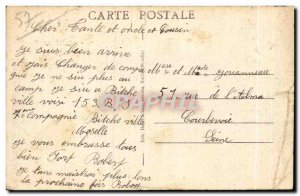 57
CARTE POSTALE
Cher Tante et oncle et Cousin
je suis bien arrivé
et vais Changer de compa
gnie je ne suis plus au
camp je suis a Bitche
ville voisi 153 R.I.
Compagnie Bitche ville
Moselle
je vous embrasse tous
bien Fort Robert
je tans maitrai plus long
la prochaine fois Robert
Mese et Mr
57 rue de l'Alma
Courbevoie
Seine